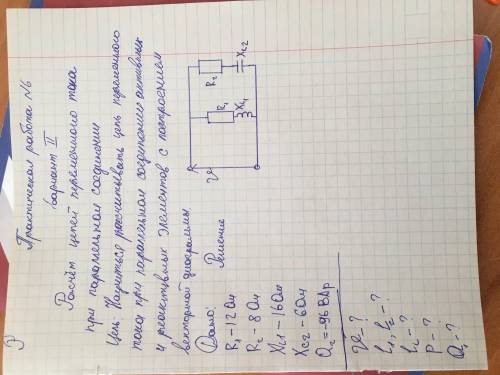 Практическая работа №6
Вариант II
Расчёт цепей переменного тока
при параллельном соединении
Цель: Научиться рассчитывать цепь переменного
тока при параллельном соединении активных
и реактивных элементов с построением
векторной диаграммы
Дано: Решение
R1 - 12 Ом
R2 - 8 Ом
XL1 - 16 Ом
XC2 - 6 Ом
Q2 = -96 ВАр
U - ?
I1, I2 - ?
P - ?
Q1 - ?
R2 XC2
R1 XL1
U